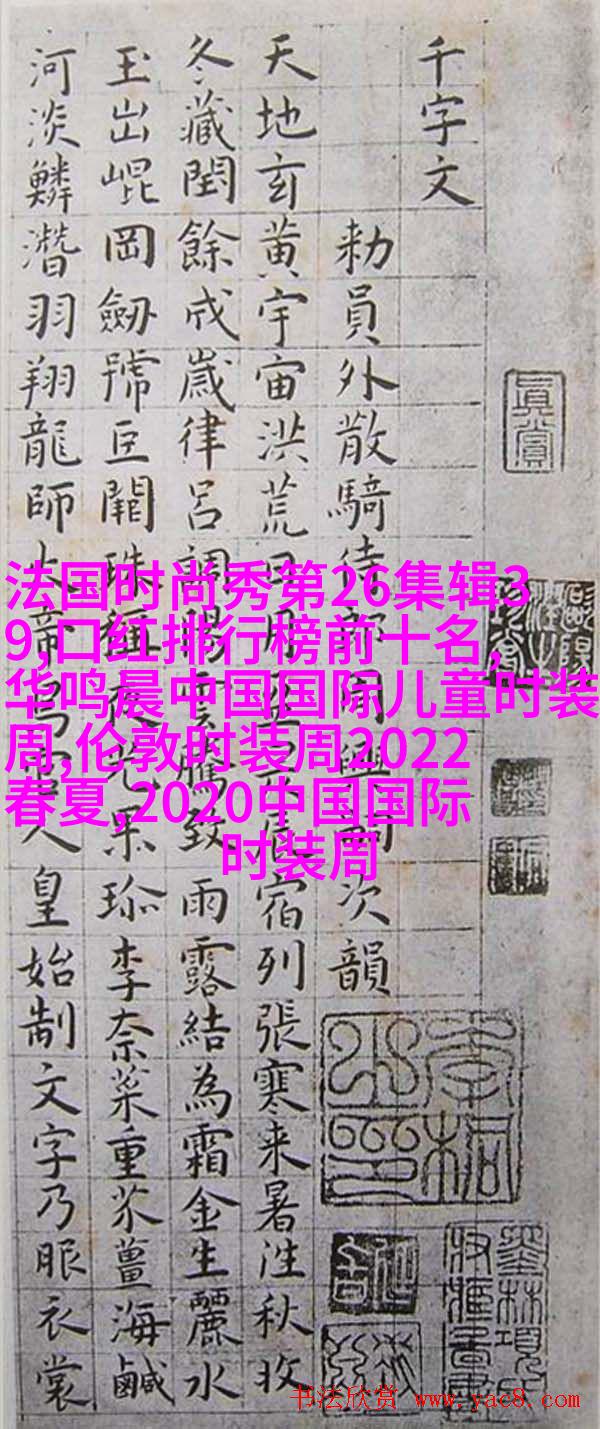 千字文
勑員外散騎侍郎周興嗣次韻
天地玄黃宇宙洪荒日月盈昃辰宿列張寒来暑往秋收
冬藏閏餘成歲律呂調陽雲騰致雨露結為霜金生麗水
玉出崐岡劒號巨闕珠稱夜光果珎李柰菜重芥薑海鹹
河淡鱗潛羽翔龍師火帝鳥官人皇始制文字乃服衣裳
真賞
法国时尚秀第26集辑3
9,口红排行榜前十名,
华鸣晨中国国际儿童时装
周,伦敦时装周2022
春夏,2020中国国际
时装周
书法欣赏 www.yac8.com